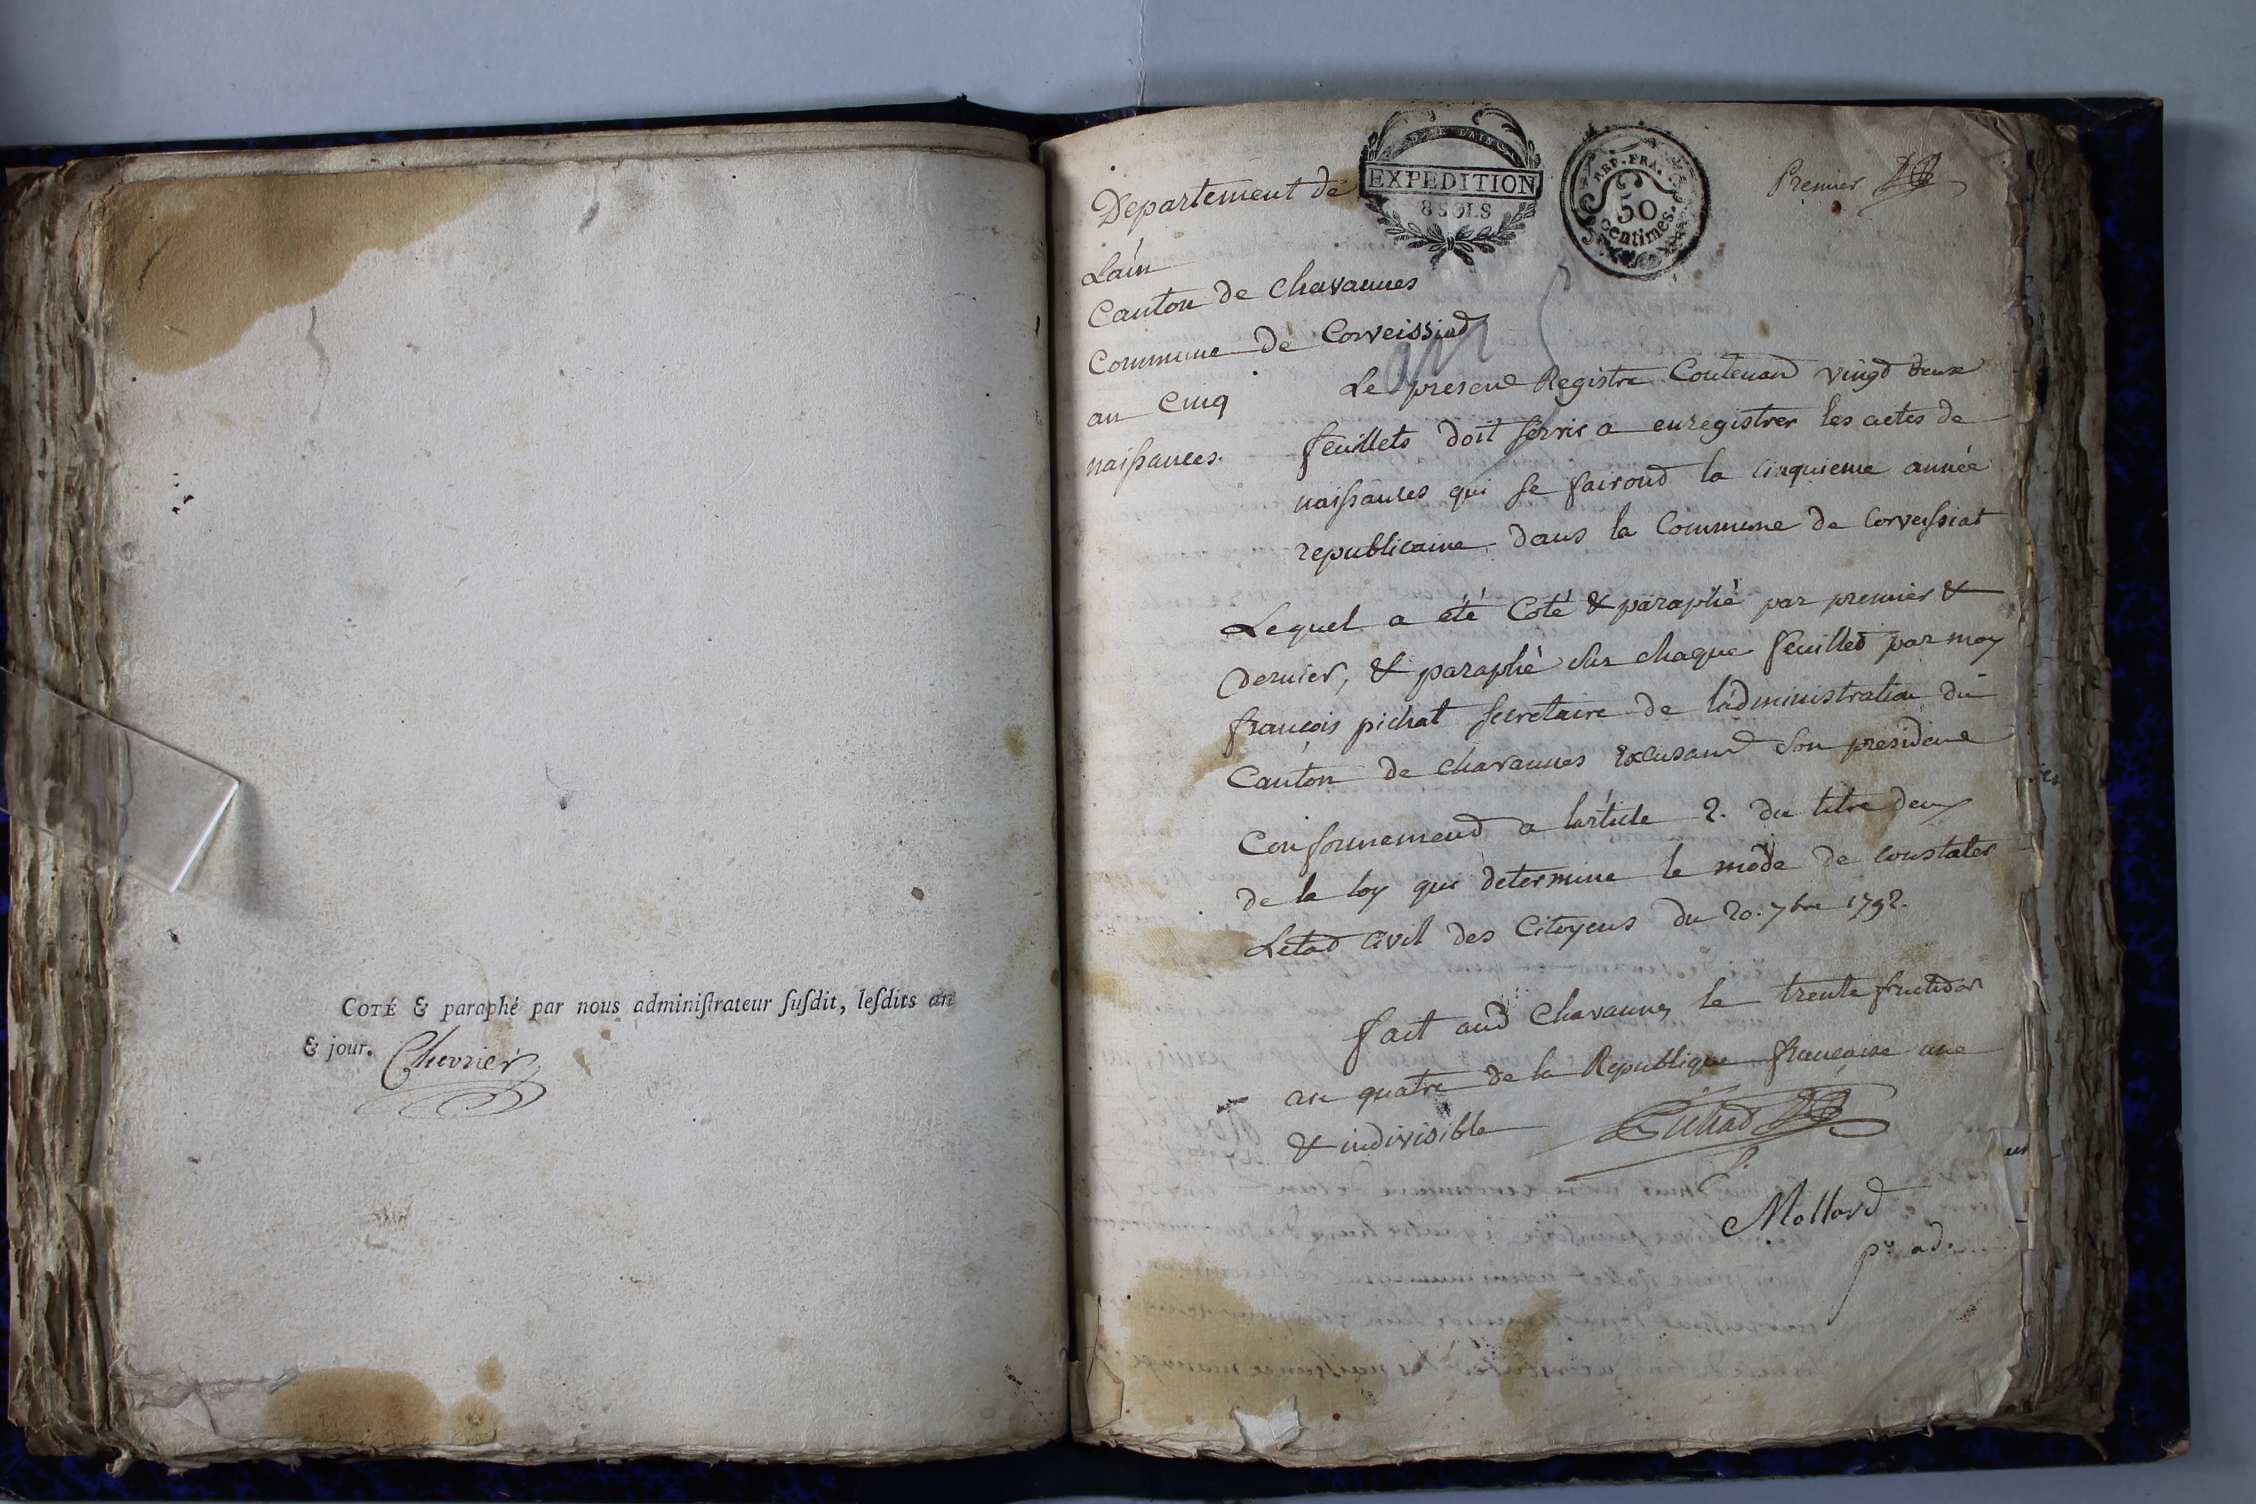 COTÉ & paraphé par nous adminiſtrateur ſuſdit, leſdits an
& jour.
Chevrier
EXPEDITION
8 SOLS
REP. FRA.
50
Centimes.
Premier
Departement de
Lain
Canton de Chavannes
Commune de Corveissiad
an Cinq
naiſsances.
an 5
Le presend Registre Contenand vingd deux
feuillets doit servir a enregistrer les actes de
naiſsances qui se fairond la cinquieme année
republicaine dans la Commune de Corveiſsiat
Lequel a été Coté & paraphé par premier &
dernier, & paraphé sur chaque feuilled par moy
françois pichat secretaire de l'administration du
Canton de chavannes excusand son presidend
Conformemend a l'article 2. du titre deux
de la loy qui determine le mode de constater
Letad Civil des Citoyens du 20. 7bre 1792.
fait aud Chavannes le trente fructidor
an quatre de la Republique française une
& indivisible Pichad
Mollard
pr. ad.